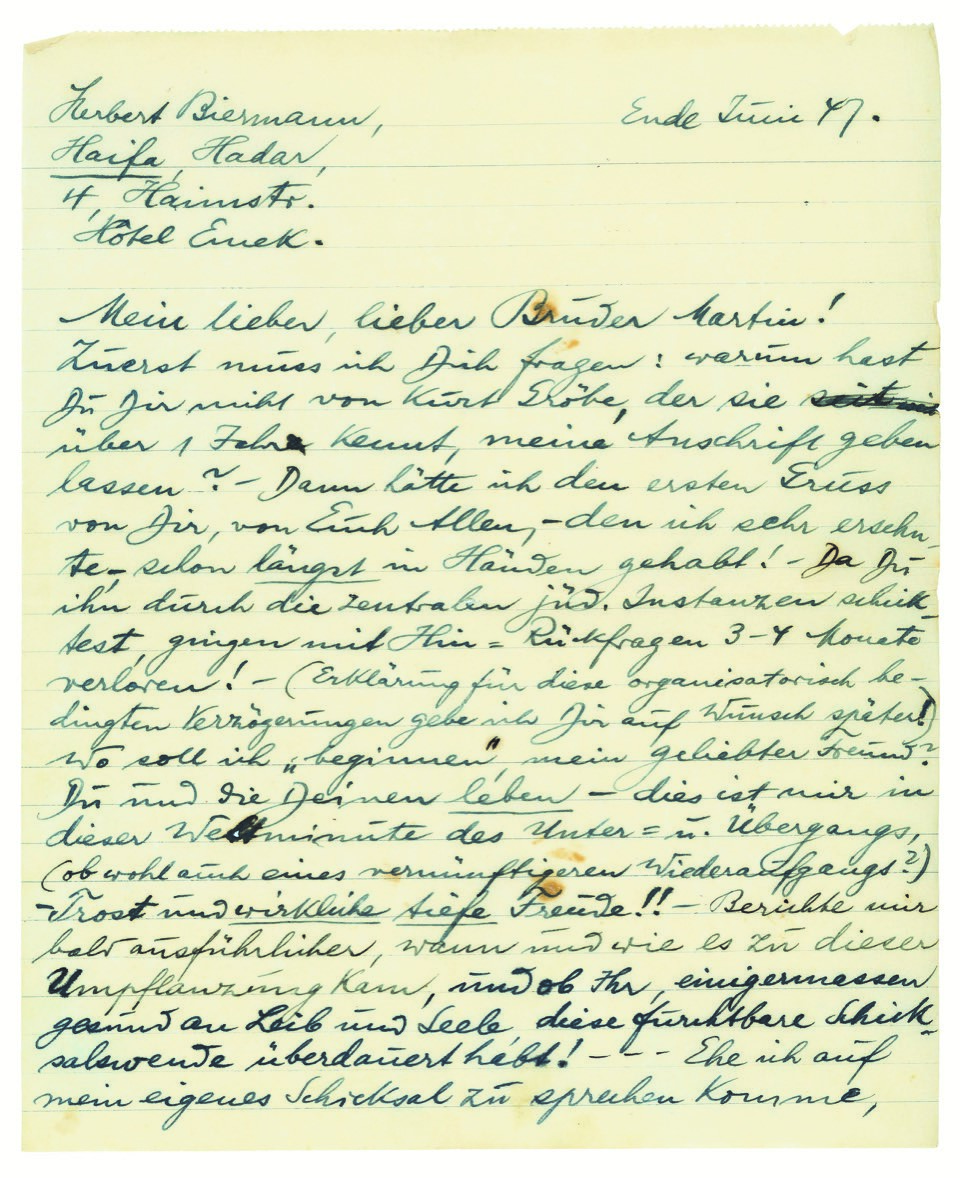 Herbert Biermann,
Ende Juni 47.
Haifa, Hadar,
4, Haimstr.
Hôtel Emek.
Mein lieber, lieber Bruder Martin!
Zuerst muss ich Dich fragen: warum hast
Du Dir nicht von Kurt Gröbe, der sie
über 1 Jahre kennt, meine Anschrift geben
lassen? – Dann hätte ich den ersten Gruss
von Dir, von Euch Allen, – den ich sehr ersehn-
te, – schon längst in Händen gehabt! – Da Du
ihn durch die zentralen jüd. Instanzen schick-
test, gingen mit Hin= Rückfragen 3–4 Monate
verloren! – (Erklärung für diese organisatorisch be-
dingten Verzögerungen gebe ich Dir auf Wunsch später!)
Wo soll ich „beginnen", mein geliebter Freund?
Du und die Deinen leben – dies ist mir in
dieser Weltminute des Unter= u. Übergangs,
(obwohl auch eines vernünftigeren Wiederaufgangs?)
– Trost und wirkliche tiefe Freude!! – Berichte mir
bald ausführlicher, wann und wie es zu dieser
Umpflanzung kam, und ob Ihr, einigermassen
gesund an Leib und Seele diese furchtbare Schick-
salswende überdauert habt! – – – Ehe ich auf
mein eigenes Schicksal zu sprechen komme,